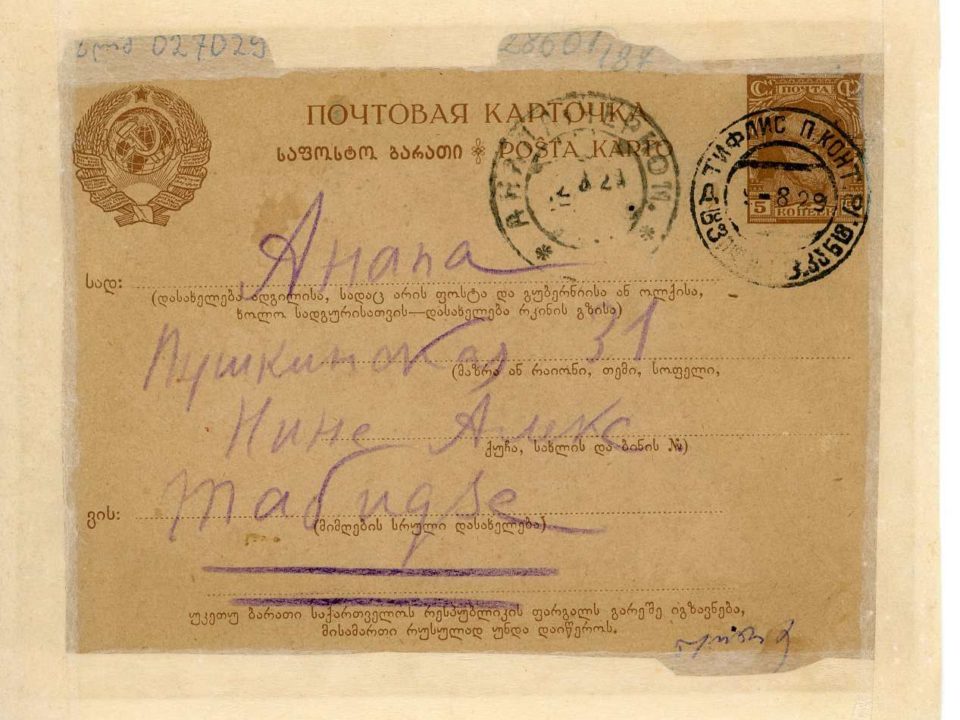 027029
28601/187
С Ф
ПОЧТА
ПОЧТОВАЯ КАРТОЧКА
ᲡᲐᲤᲝᲡᲢᲝ ᲑᲐᲠᲐᲗᲘ ❉ POSTA KARTO
ТИФЛИС П. КОНТ
-8 29
5 КОПЕЕК
Анапа
სად:
(დასახელება ადგილისა, სადაც არის ფოსტა და გუბერნიისა ან ოლქისა,
ხოლო სადგურისათვის—დასახელება რკინის გზისა)
Пушкинская 31
(მაზრა ან რაიონი, თემი, სოფელი,
Нине Алекс
ქუჩა, სახლის და ბინის №)
Табидзе
ვის:
(მიმღების სრული დასახელება)
უკეთუ ბარათი საქართველოს რესპუბლიკის ფარგალს გარეშე იგზავნება,
მისამართი რუსულად უნდა დაიწეროს.